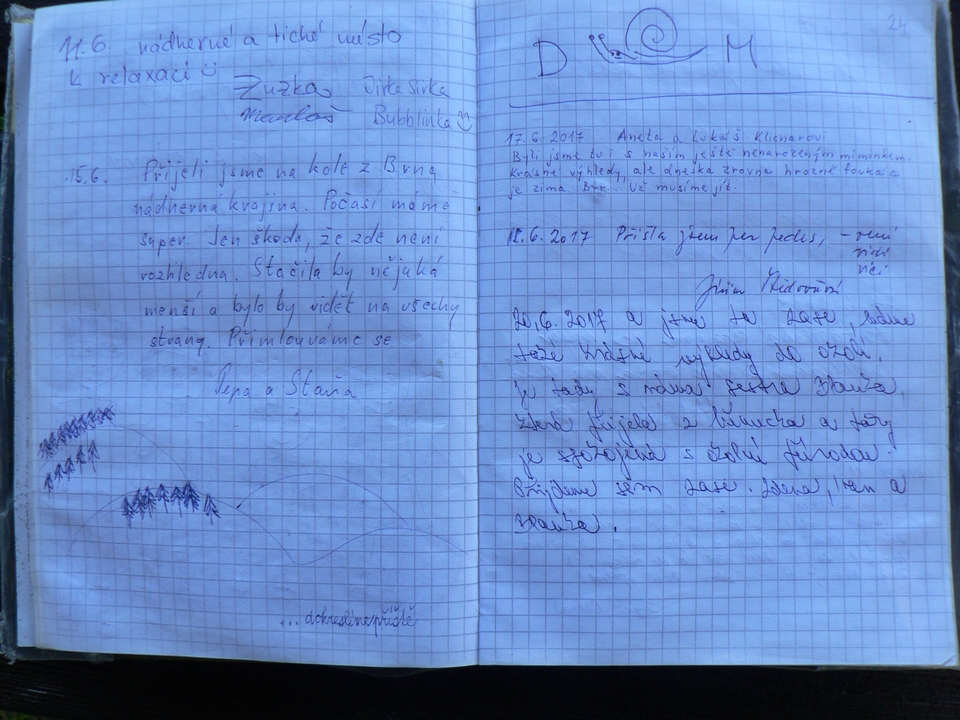 11.6. nádherné a tiché místo
k relaxaci
Zuzka Jirka Sirka
Bubblinka
15.6. Přijeli jsme na kole z Brna
nádherná krajina. Počasí máme
super. Jen škoda, že zde není
rozhledna. Stačila by nějaká
menší a bylo by vidět na všechy
strany. Přimlouváme se
Pepa a Staňa
... dokreslíme příště
24
D M
17.6.2017 Aneta a Lukáš
Byli jsme tu i s naším ještě nenarozeným miminkem.
Krásné výhledy, ale dneska zrovna hrozně fouká a
je zima. Brr. Už musíme jít.
18.6.2017 Přišla jsem per pedes,
20.6.2017 a jsme tu zase, máme
také krásné výhledy do okolí.
je tady s náma sestra
která přijela z a taky
je spokojená s okolní přírodou.
Přijdeme sem zase. Zdena, a